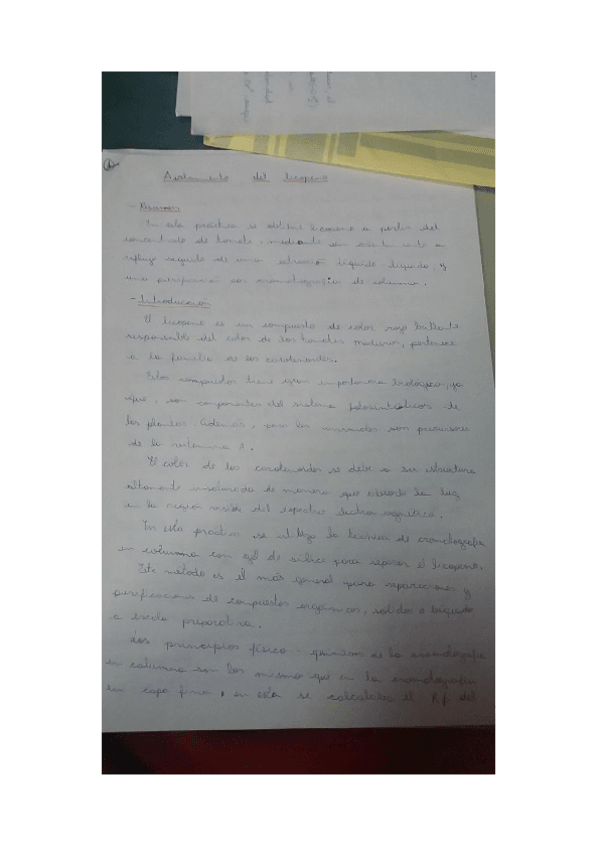 Aislamiento del licopeno
- Resumen
En esta práctica se obtiene licopeno a partir del
concentrado de tomate, mediante un calentamiento a
reflujo seguido de una extracción líquido-líquido y
una purificación por cromatografía de columna.
- Introducción
El licopeno es un compuesto de color rojo brillante
responsable del color de los tomates maduros, pertenece
a la familia de los carotenoides.
Estos compuestos tiene gran importancia biológica, ya
que, son componentes del sistema fotosintéticos de
las plantas. Además, para los animales son precursores
de la vitamina A.
El color de los carotenoides se debe a su estructura
altamente insaturada de manera que absorbe la luz
en la región visible del espectro electromagnético.
En esta práctica se utiliza la técnica de cromatografía
en columna con gel de sílice para separar el licopeno.
Este método es el más general para separaciones y
purificaciones de compuestos orgánicos, sólidos o líquidos
a escala preparativa.
Los principios físico-químicos de la cromatografía
en columna son los mismos que en la cromatografía
en capa fina, en esta se calculaba el Rf del